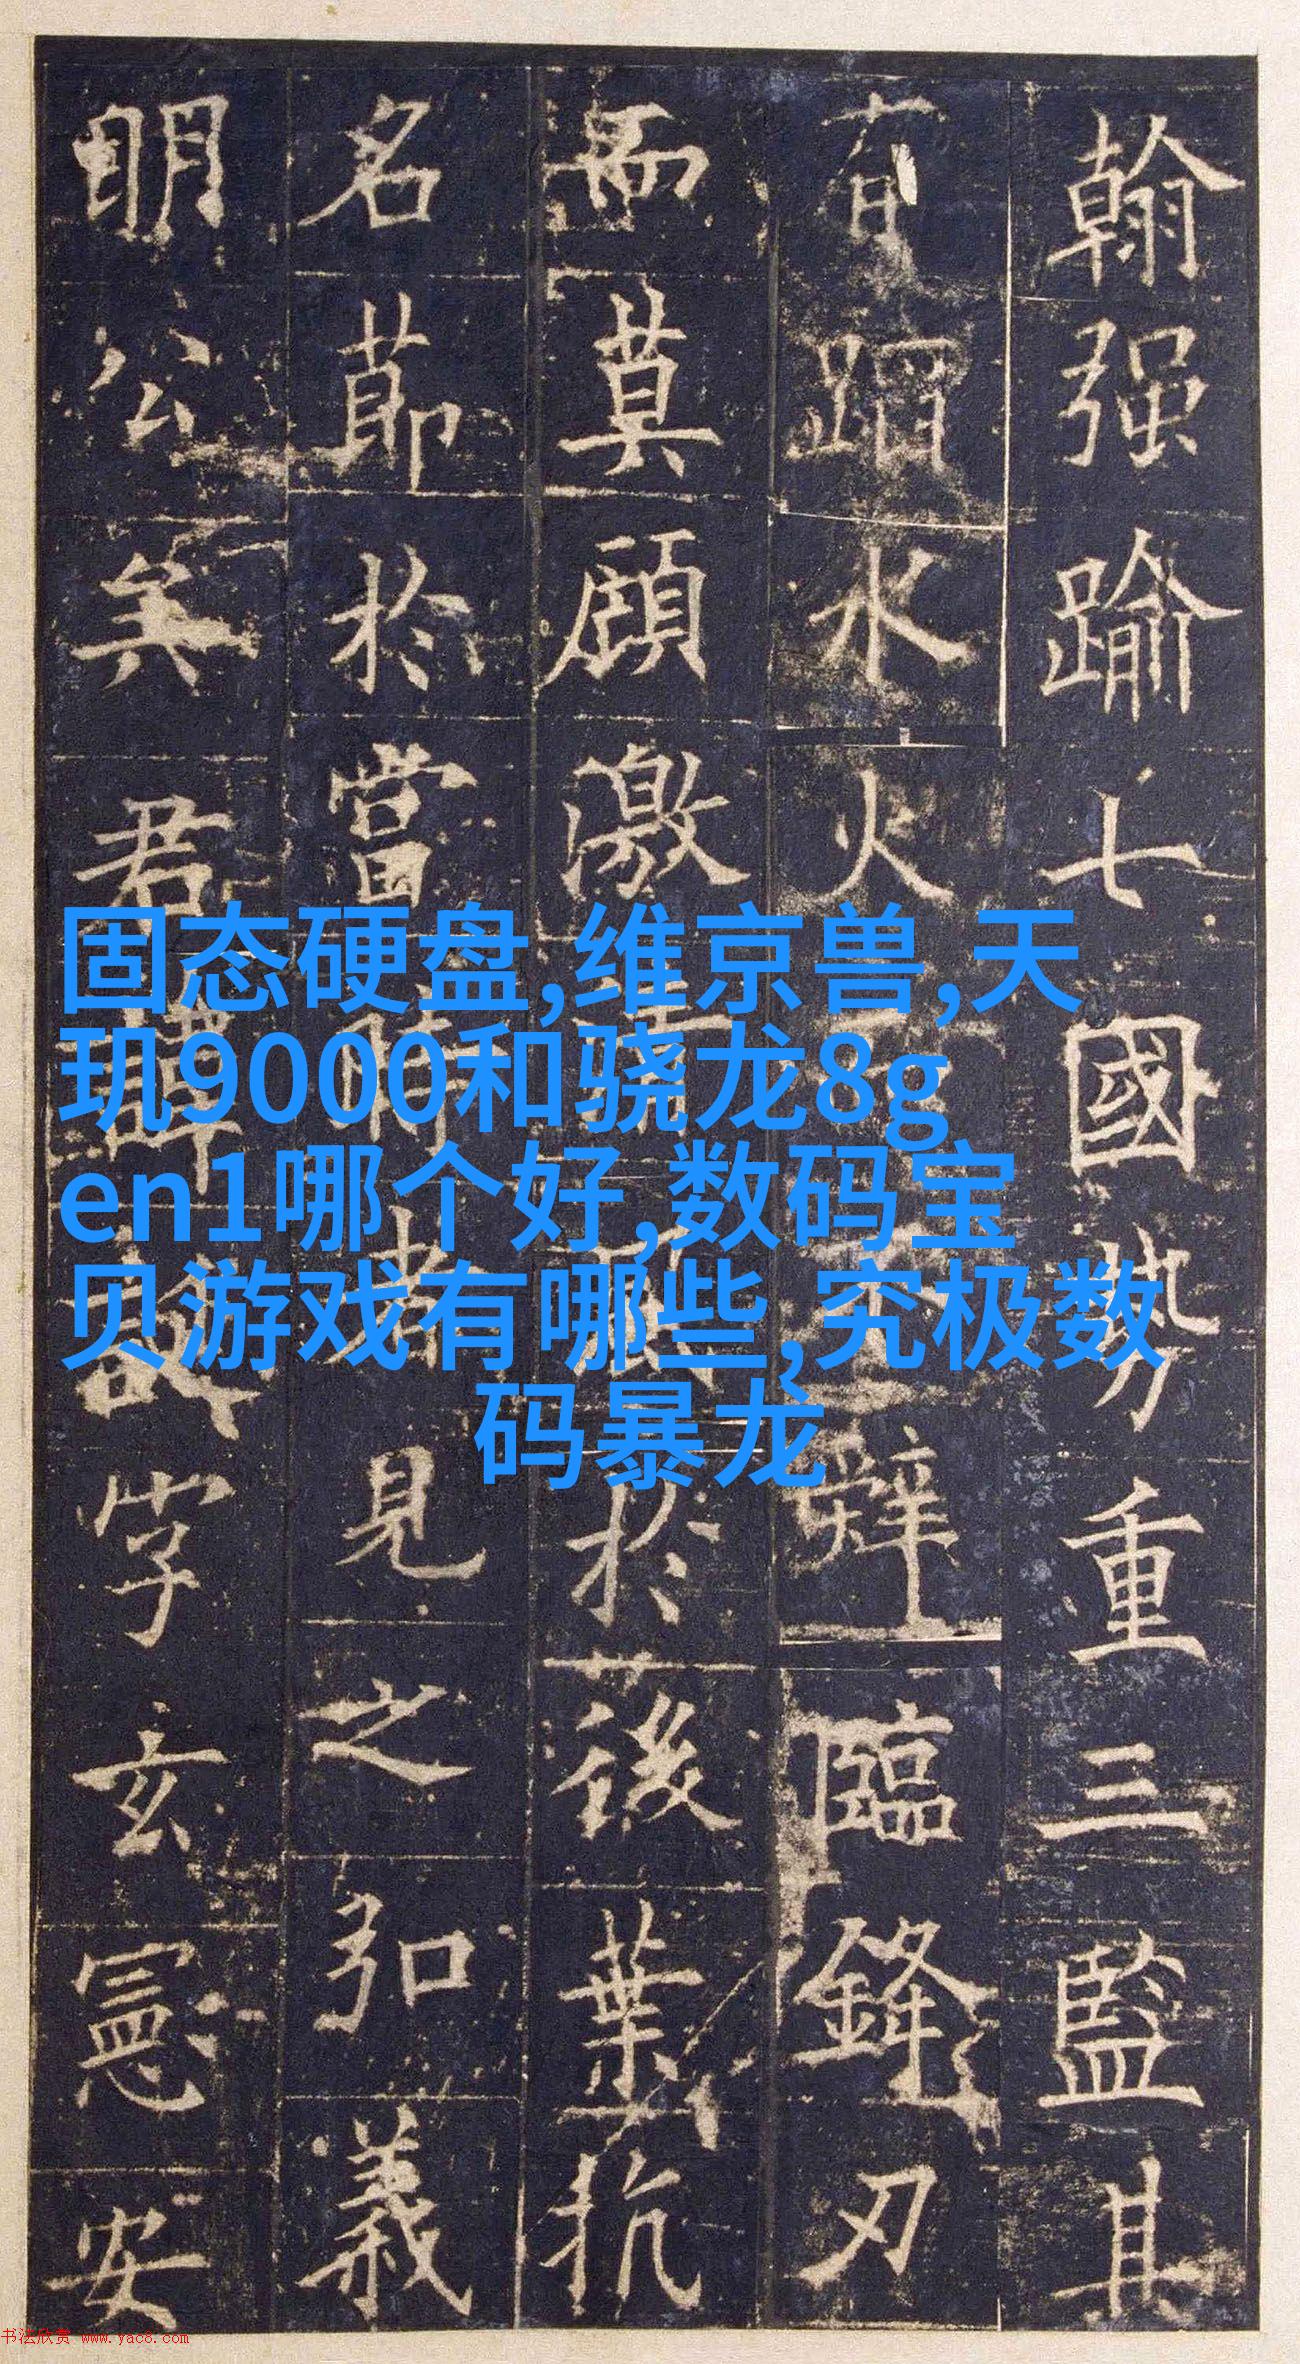 翰强踰七國勢重三監其
有蹈水火辭臨鋒刃
而莫顧激清風於後葉抗
名節於當時者見之弘義
明公矣君諱誕字玄憲安
固态硬盘,维京兽,天
玑9000和骁龙8g
en1哪个好,数码宝
贝游戏有哪些,究极数
码暴龙
书法欣赏 www.yac8.com